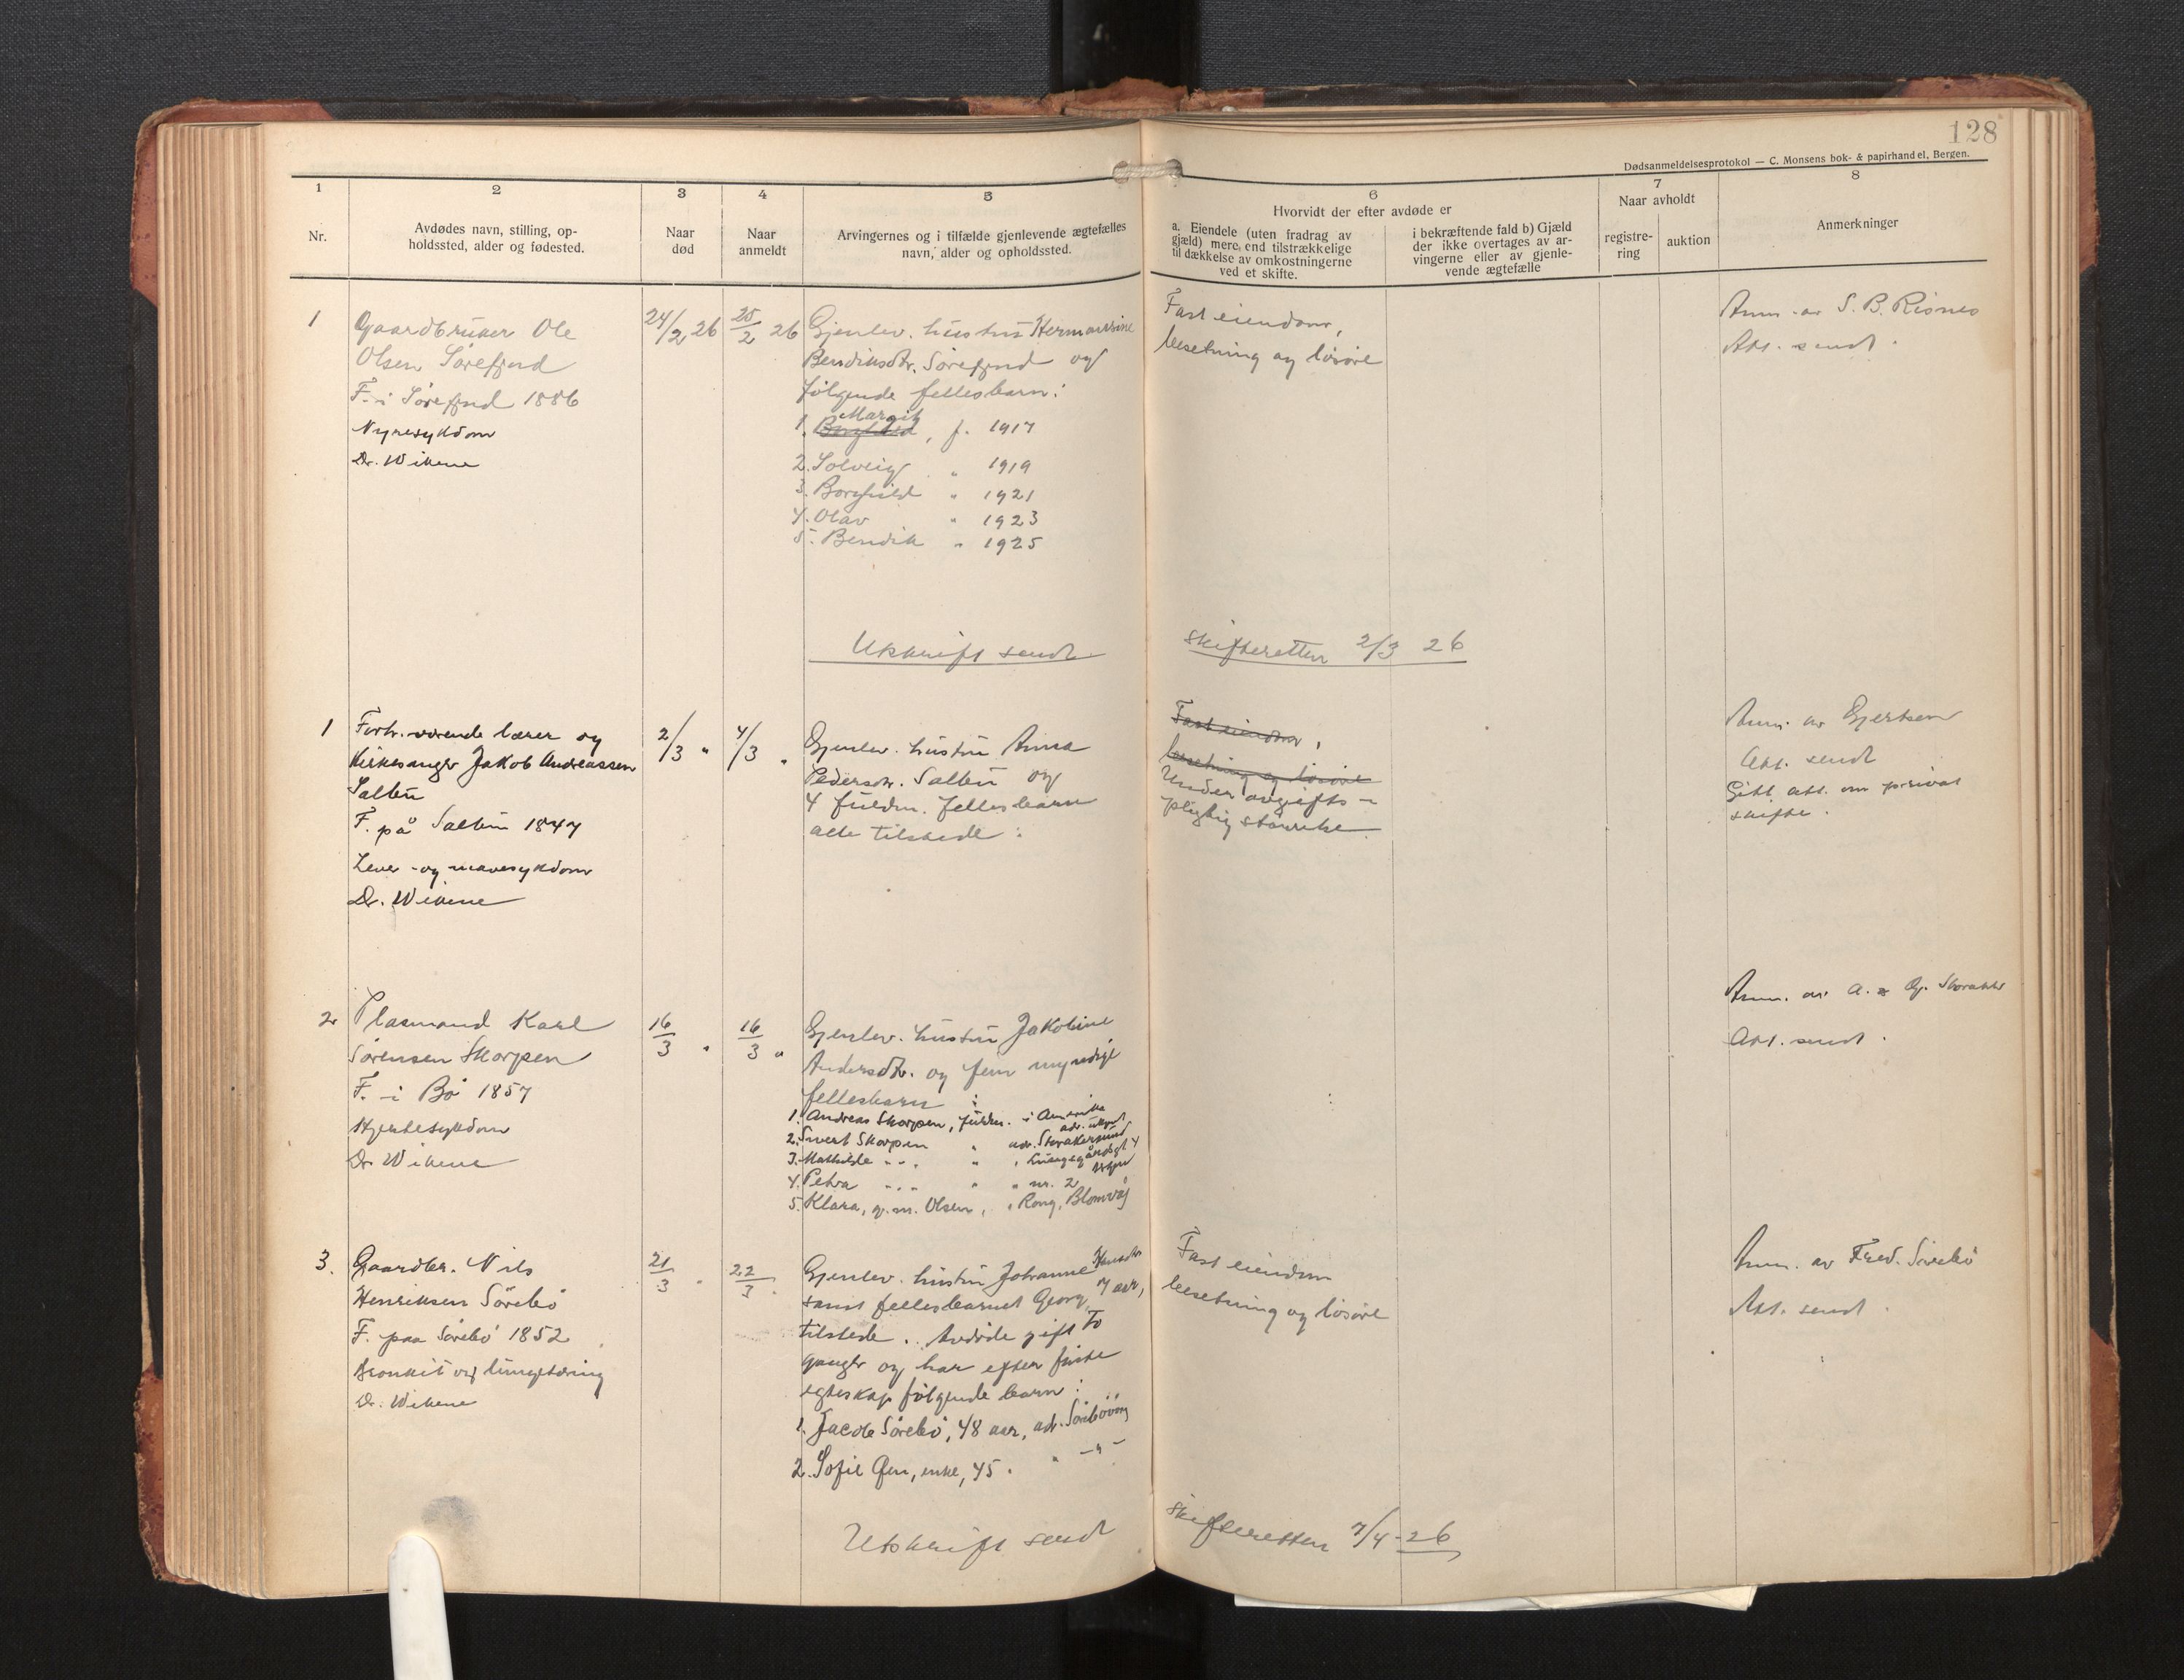 128
Dødsanmeldelsesprotokol — C. Monsens bok- & papirhandel, Bergen.
1
2
3
4
5
6
7
8
Nr.
Avdødes navn, stilling, op-
holdssted, alder og fødested.
Naar
død
Naar
anmeldt
Arvingernes og i tilfælde gjenlevende ægtefælles
navn, alder og opholdssted.
Hvorvidt der efter avdøde er
a. Eiendele (uten fradrag av
gjæld) mere end tilstrækkelige
til dækkelse av omkostningerne
ved et skifte.
i bekræftende fald b) Gjæld
der ikke overtages av ar-
vingerne eller av gjenle-
vende ægtefælle
Naar avholdt
registre-
ring
auktion
Anmerkninger
1
Gaardbruker Ole
Olsen Sørefjord
F. i Sørefjord 1886
Nyresykdom
Dr. Wikene
24/2 26
25/2 26
Gjenlev. hustru Hermansine
Bendiksdtr. Sørefjord og
følgende fellesbarn:
Margit
1. Borghild, f. 1917
2. Solveig " 1919
3. Borghild " 1921
4. Olav " 1923
5. Bendik " 1925
Fast eiendom,
besetning og løsøre
Anm. av S. B. Risnes
Att. sendt.
Utskrift sendt skifteretten 2/3 26
1
Forh. værende lærer og
Kirkesanger Jakob Andreassen
Salbu
F. på Salbu 1847
Lever- og mavesykdom
Dr. Wikene
2/3 "
4/3 "
Gjenlev. hustru Anna
Pedersdtr. Salbu og
4 fuldm. fellesbarn
alle tilstede:
Fast eiendom,
besetning og løsøre
Under avgifts-
pligtig størrelse
Anm. av Gjertsen
Att. sendt
Gitt att. om privat
skifte.
2
Plasmand Karl
Sørensen Skorpen
F. i Bø 1857
Hjertesykdom
Dr. Wikene
16/3 "
16/3 "
Gjenlev. hustru Jakobine
Andersdtr. og fem myndige
fellesbarn:
1. Andreas Skorpen, fuldm. i Amerika
adr. ukjent
2. Sivert Skorpen " adr.
3. Mathilde - " - " "
4. Petra - " - " " nr. 2
5. Klara, g. m. Olsen, " Rong, Blomvåg
Anm. av A.
Att. sendt.
3.
Gaardbr. Nils
Henriksen Sørebø
F. paa Sørebø 1852
Bronkit og lungetæring
Dr. Wikene
21/3 "
22/3 "
Gjenlev. hustru Johanne Hansdtr
samt fellesbarnet Georg, 7 aar,
tilstede. Avdøde gift to
ganger og har efter første
egteskap følgende barn:
1. Jacob Sørebø, 48 aar, adr. Sørebøvåg
2. Sofie Øen, enke, 45 " " - " -
Fast eiendom
besetning og løsøre
Anm. av Fred. Sørebø
Att. sendt.
Utskrift sendt skifteretten 7/4-26